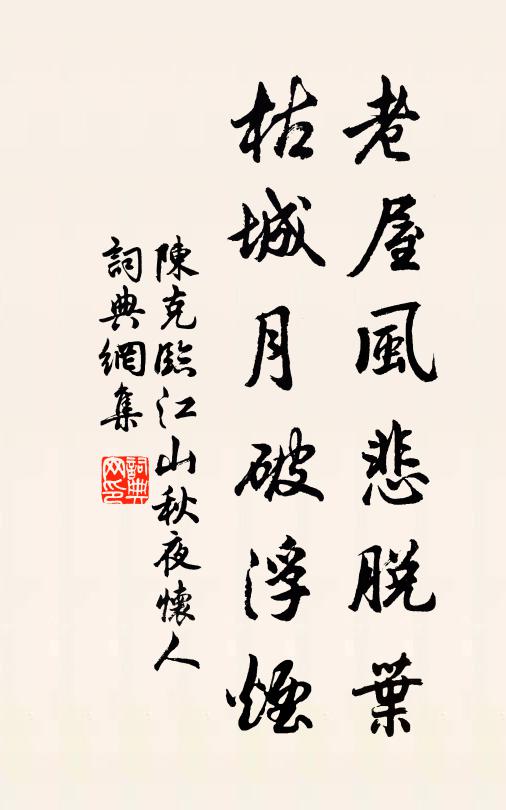 老屋風悲脱葉
枯城月破浮煙
陳克臨江山秋夜懷人
詞典網集
詞典網印